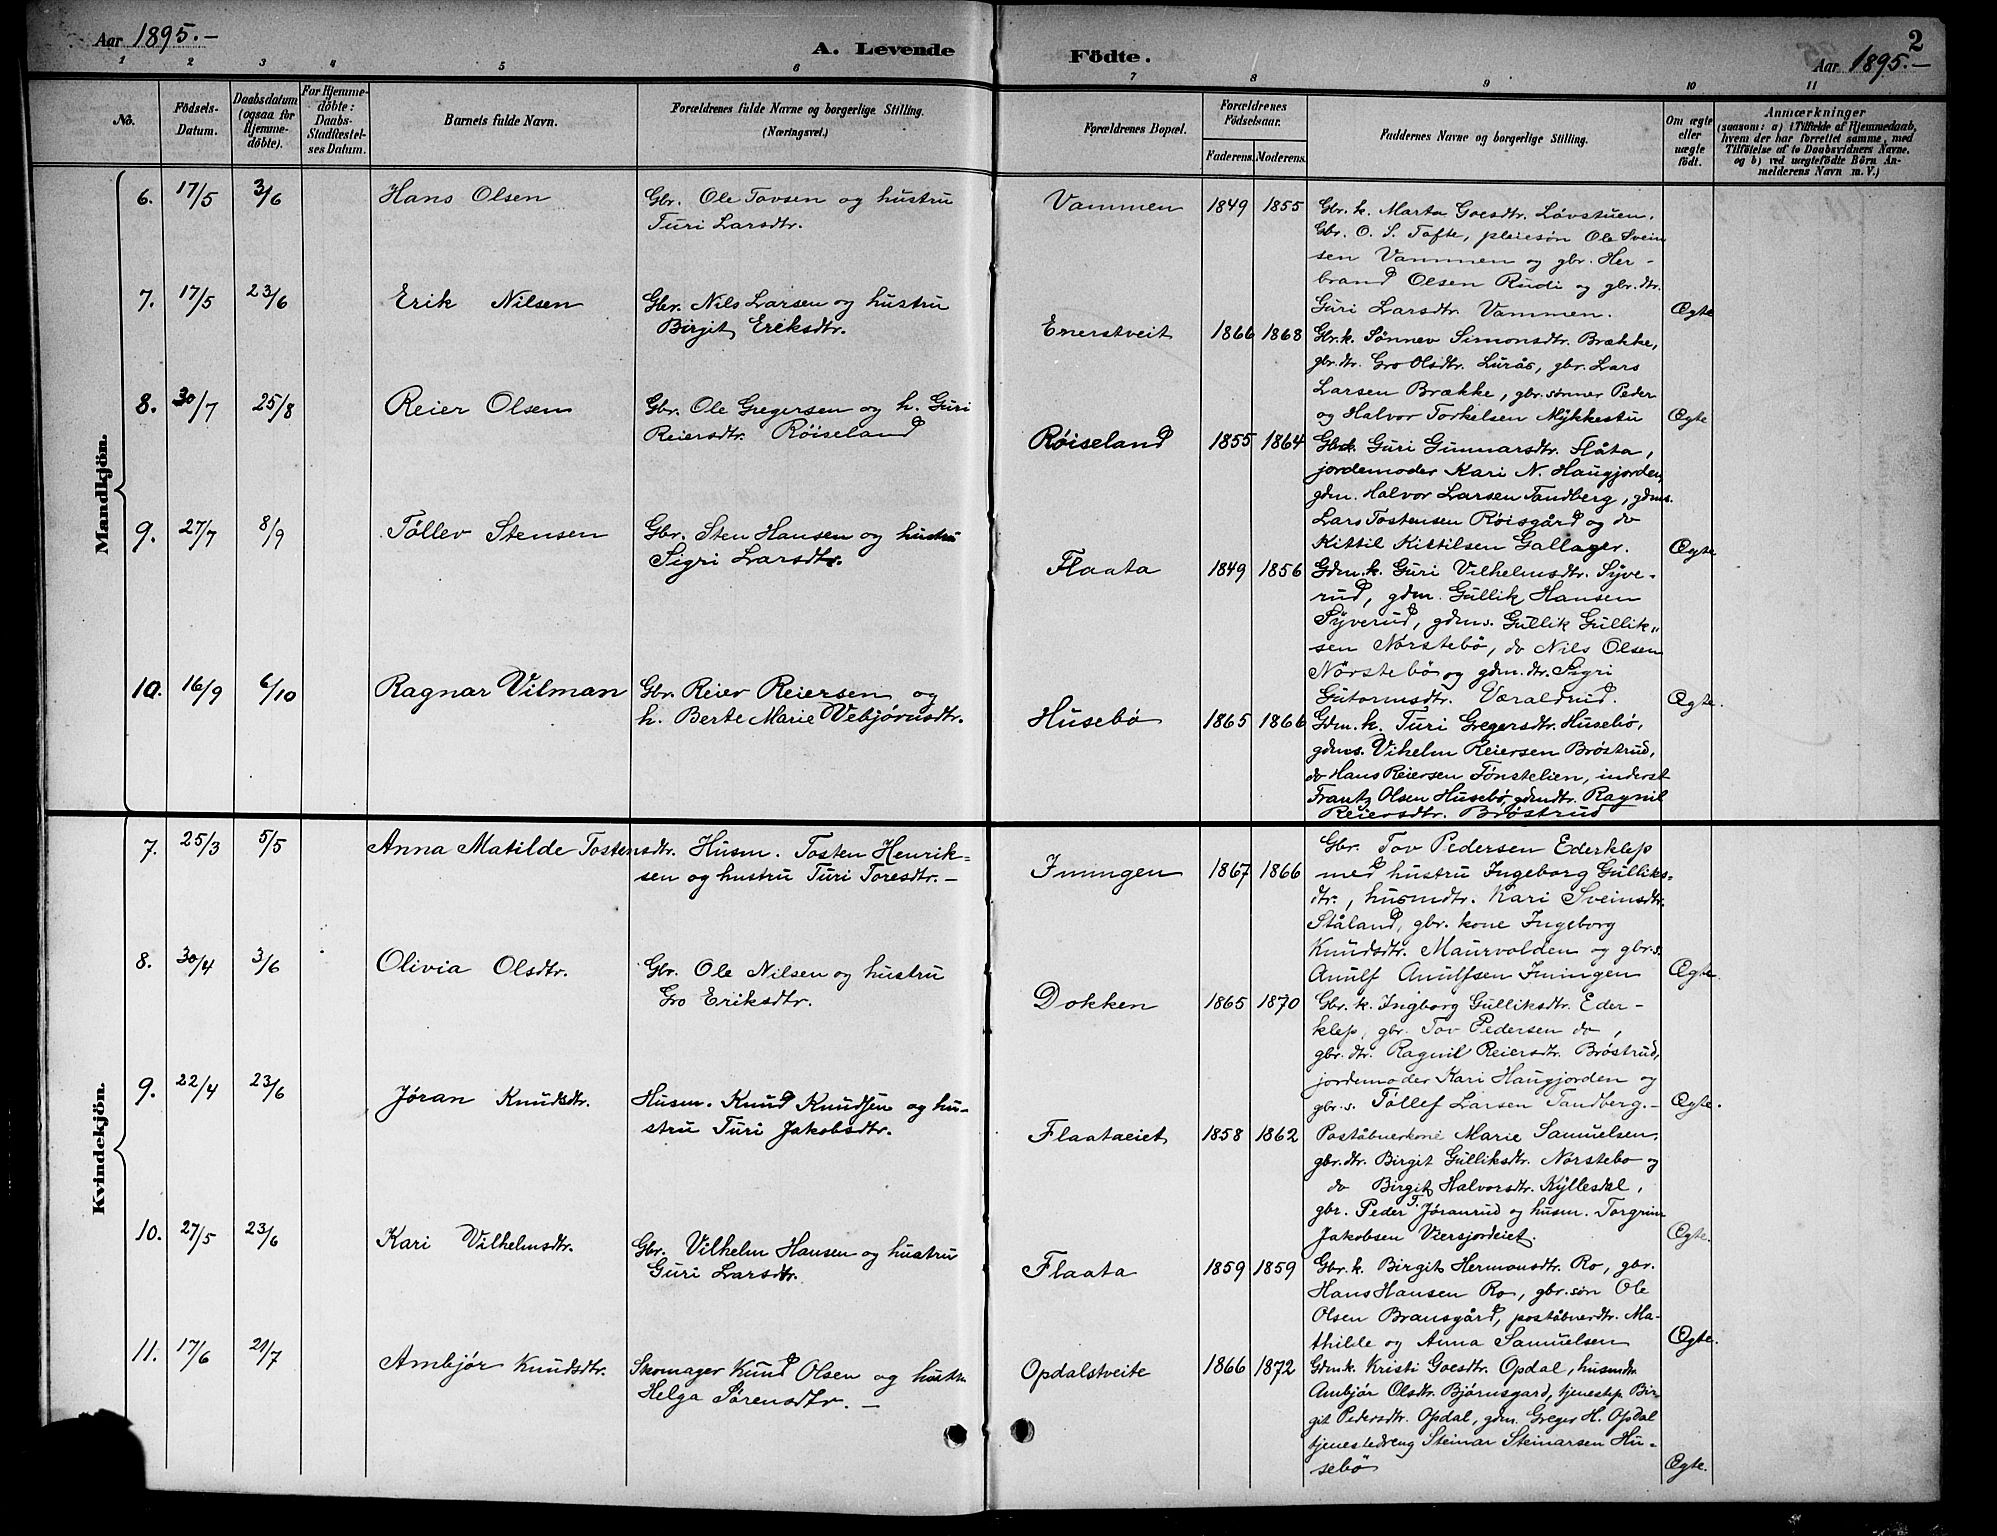 Aar 1895.— A. Levende Födte. 2 Aar 1895.—
1 2 3 4 5 6 7 8 9 10 11
No.
Födsels-
Datum.
Daabsdatum
(ogsaa for
Hjemme-
döbte).
For Hjemme-
döbte:
Daabs-
Stadfæstel-
ses Datum.
Barnets fulde Navn.
Forældrenes fulde Navne og borgerlige Stilling.
(Næringsvei.)
Forældrenes Bopæl.
Forældrenes
Födselsaar.
Faderens. Moderens.
Faddernes Navne og borgerlige Stilling.
Om ægte
eller
uægte
födt.
Anmærkninger
(saasom: a) i Tilfælde af Hjemmedaab,
hvem der har forrettet samme, med
Tilföielse af to Daabsvidners Navne,
og b) ved uægtefödte Börn An-
melderens Navn m. V.)
Mandkjön.
6. 17/5 3/6 Hans Olsen
Gbr. Ole Tovsen og hustru
Turi Larsdtr.
Vammen 1849 1855
Gbr. k. Marta Goesdtr. Lövstuen,
Gbr. O. S. Tofte, pleiesøn Ole Svein
sen Vammen og gbr. Her-
brand Olsen Rudi og gbr. dtr.
Guri Larsdtr Vammen. Ægte
7. 17/5 23/6 Erik Nilsen
Gbr. Nils Larsen og hustru
Birgit Eriksdtr.
Enerstveit 1866 1868
Gbr. k. Sønnev Simonsdtr. Brække,
gbr. dtr. Gro Olsdtr. Lurås, gbr. Lars
Larsen Brække, gbr. sønner Peder
og Halvor Torkelsen Mykkestu Ægte
8. 30/7 25/8 Reier Olsen
Gbr. Ole Gregersen og h. Guri
Reiersdtr. Røiseland
Røiseland 1855 1864
Gbr. k. Guri Gunnarsdtr. Flåta,
jordemoder Kari N. Haugjorden,
gdm. Halvor Larsen Tandberg, gdms.
Lars Tostensen Røisgård og do
Kittil Kittilsen Gallager. Ægte
9. 27/7 8/9 Tøllev Stensen
Gbr. Sten Hansen og hustru
Sigri Larsdtr.
Flaata 1849 1856
Gdm. k. Guri Vilhelmsdtr. Syve-
rud, gdm. Gullik Hansen
Syverud, gdms. Gullik Gullik-
sen Nørstebø, do Nils Olsen
Nørstebø og gdm. dtr. Sigri
Gutormsdtr. Væraldrud. Ægte.
10. 16/9 6/10 Ragnar Vilman
Gbr. Reier Reiersen og
h. Berte Marie Vebjørnsdtr.
Husebö 1865 1866
Gdm. k. Turi Gregersdtr. Husebø,
gdms. Vihelm Reiersen Brøstrud,
do Hans Reiersen Tønstelien, inderst
Frantz Olsen Husebø, gdmdtr. Ragnil
Reiersdtr. Brøstrud
Kvindekjön.
7. 25/3 5/5 Anna Matilde Tostensdtr.
Husm. Tosten Henrik-
sen og hustru Turi Toresdtr.—
Imingen 1867 1866
Gbr. Tov Pedersen Ederklep
med hustru Ingeborg Gulliks-
dtr., husmdtr. Kari Sveinsdtr.
Ståland, gbr. kone Ingeborg
Knudsdtr. Maurvolden og gbr. s.
Anulf Anulfsen Imingen Ægte.
8. 30/4 3/6 Olivia Olsdtr.
Gbr. Ole Nilsen og hustru
Gro Eriksdtr.
Dokken 1865 1870
Gbr. k. Ingborg Gulliksdtr. Eder-
klep, gbr. Tov Pedersen do,
gbr. dtr. Ragnil Reiersdtr. Brøstrud,
jordemoder Kari Haugjorden og
gbr. s. Tøllef Larsen Tandberg.— Ægte.
9. 22/4 23/6 Jøran Knudsdtr.
Husm. Knud Knudsen og hu-
stru Turi Jakobsdtr.
Flaataeiet 1858 1862
Poståbnerkone Marie Samuelsen,
gbr. dtr. Birgit Gulliksdtr. Nørstebo og
do Birgit Halvorsdtr. Kyllesdal,
gbr. Peder T. Jøranrud og husm. Torgrim
Jakobsen Viersjordeiet. Ægte.
10. 27/5 23/6 Kari Vilhelmsdtr.
Gbr. Vilhelm Hansen og hustru
Guri Larsdtr.
Flaata 1859 1859
Gbr. k. Birgit Hermonsdtr. Ro, gbr.
Hans Hansen Ro, gbr. søn Ole
Olsen Bransgård, poståbnerdtr. Ma-
thilde og Anna Samuelsen Ægte.
11. 17/6 21/7 Ambjør Knudsdtr.
Skomager Knud Olsen og hustru
Helga Sørensdtr.—
Opdalstveite 1866 1872
Gdm k. Kristi Goesdtr. Opdal, husmdtr
Ambjør Olsdtr. Bjørnsgard, tjenestep. Bir-
git Pedersdtr. Opdal, gdm. Greger H. Opdal
tjenestedreng Steinar Steinarsen Hu-
sebö Ægte.